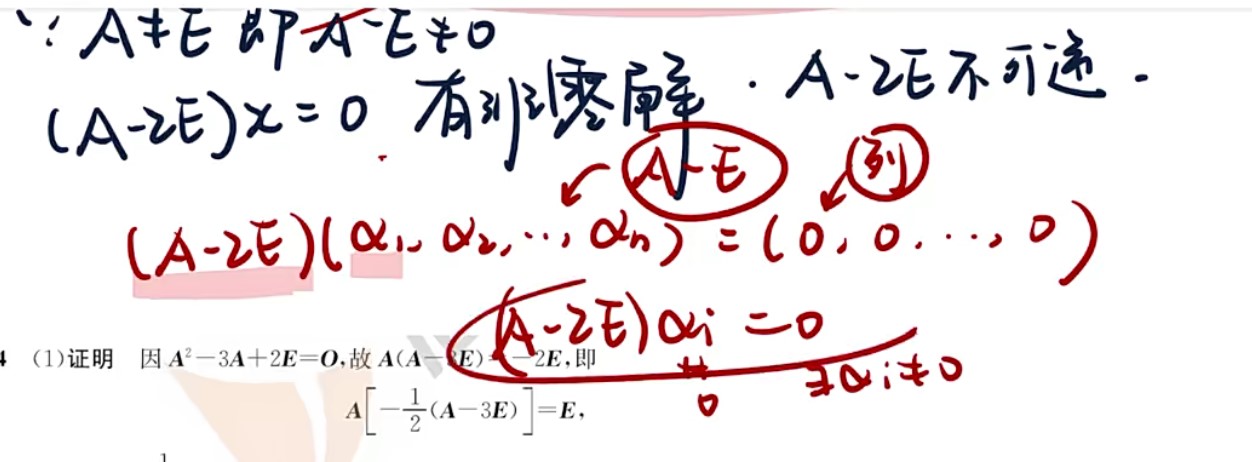 ∵ A≠E 即 A-E≠0
(A-2E)x=0 有非零解. A-2E不可逆.
A-E 列
(A-2E)(α₁, α₂, …, αₙ) = (0, 0, …, 0)
(A-2E)αᵢ = 0
≠ 0 ∃αᵢ≠0
4 (1)证明 因 A²-3A+2E=O,故 A(A-3E)=-2E,即
A[-1/2(A-3E)]=E,
1